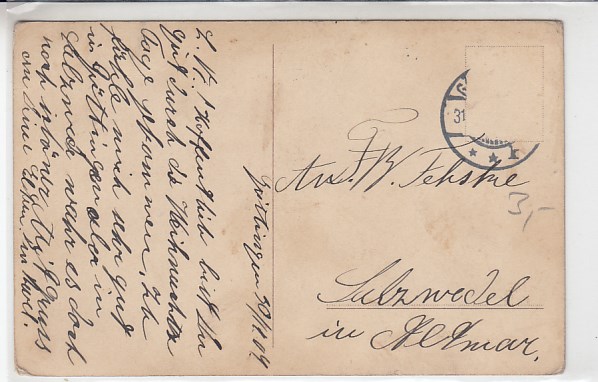 Göttingen 30/12 09
L. W! Hoffentlich bist Du
gut durch die Weihnachts
tage gekommen. Ich
fühle mich sehr gut
in Göttingen aber in
Salzwedel wäre es doch
noch schöner. Mit Gruss
an Deine Eltern
31
An. F. W. Fehske
Salzwedel
in Altmar.
3,-